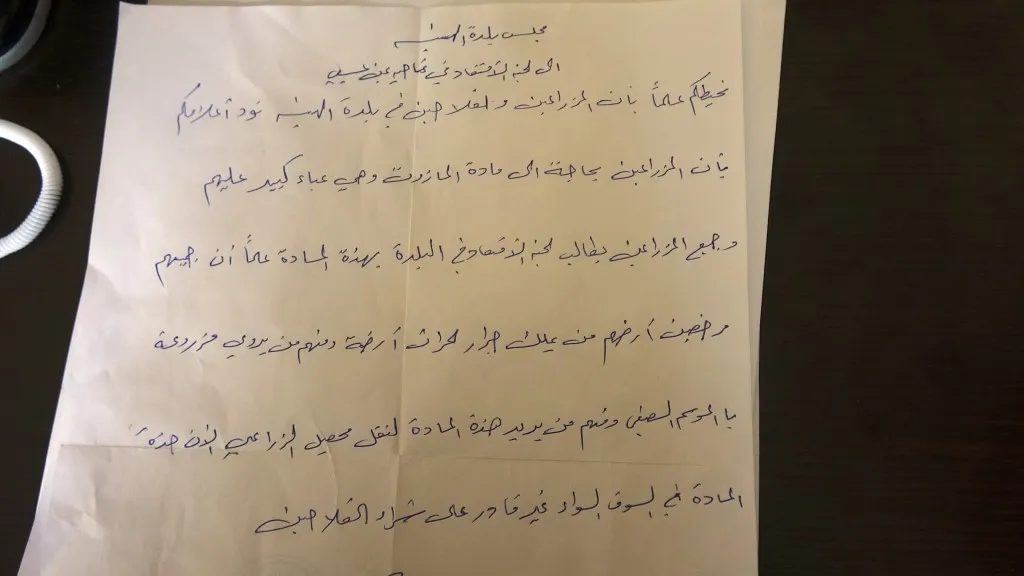 مجلس بلدة الهيشة
الى لجنة الاقتصاد في ناحية عين عيسى
نحيطكم علماً بأن المزراعين والفلاحين في بلدة الهيشة نود أعلامكم
بأن المزراعين بحاجة الى مادة المازوت وهي عباء كبير عليهم
وجميع المزراعين يطالب لجنة الاقتصاد في البلدة بهذة المادة علماً أن جميهم
مرخصين أرضهم من يملك جرار لحراث أرضة ومنهم من يروي مزروعة
با الموسم الصيفي ومنهم من يريد هذة المادة لنقل محصيل الزراعي الان هذة
المادة في السوق السواء غير قادر على شراء الفلاحين